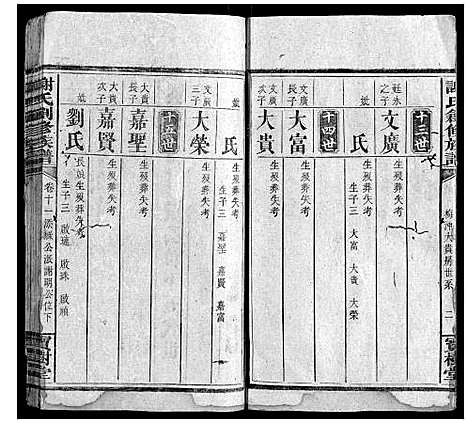 謝氏創修族譜
大貴房世系
二
寶樹堂
十三世
廷永之子
文廣
生歿葬失考
氏
生歿葬失考
生子三 大富 大貴 大榮
十四世
文廣長子
大富
生歿葬失考
文廣次子
大貴
生歿葬失考
氏
生歿葬失考
生子三 嘉聖 嘉賢 嘉富
文廣三子
大榮
生歿葬失考
十五世
大貴長子
嘉聖
生歿葬失考
大貴次子
嘉賢
生歿葬失考
劉氏
生歿葬失考
生子三 啟達 啟珠 啟順
謝氏創修族譜
卷十一 添綵公派謝明公位下
寶樹堂